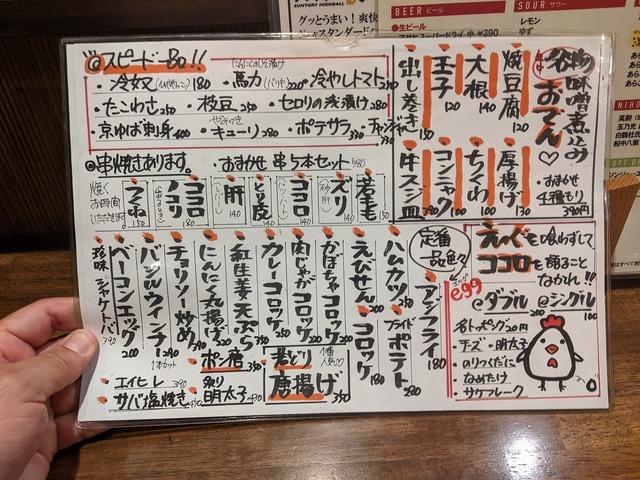 SUNTORY HIGHBALL
グッとうまい!爽快
BEER ビール
●生ビール
アサヒスーパードライ 中 ¥390
SOUR サワー
レモン
ゆず
@スピードーBo!!
・冷奴 180 ・馬力 220 ・冷やしトマト 250
・たこわさ 250 ・枝豆 250 ・セロリの浅漬け 280
・京ゆば刺身 400 ・キューリ 280 ・ポテサラ 390 ・チャンジャ
名物
味噌煮込み
おでん♡
焼豆腐 120
大根 140
玉子 120
出し巻き 150
厚揚げ 130
ちくわ 100
コンニャク 100
牛スジ皿 390
・おまかせ
4種もり
390円
@串焼きあります。 ・おまかせ 串5本セット 580
焼く
お時間
いただきます
若手毛 150
ズリ 140
ココロ 140
とり皮 140
肝 140
ココロノコリ 180
つくね 150
定番
一品色々
アジフライ 180
ハムカツ 250
フライドポテト 280
えびせん 200
コロッケ 180
かぼちゃコロッケ 200
肉じゃがコロッケ 200
カレーコロッケ 200
紅生姜天ぷら 350
にんにく丸揚げ 320
チョリソー炒め 290
バジルウインナー 290
ベーコンエッグ 200
珍味 シャケトーバ 390
1本カット
・エイヒレ 390
・サバ塩焼き 450
・ポン唐 350
・炙り明太子 430
若どり
唐揚げ 350
1番人気♡
えっぐを喰わずして
ココロを語ること
なかれ!!
e99
@ダブル 200 @シングル 100
・各トッピング20円
・チーズ・明太子
・のりつくだに
・なめたけ
・サケフレーク